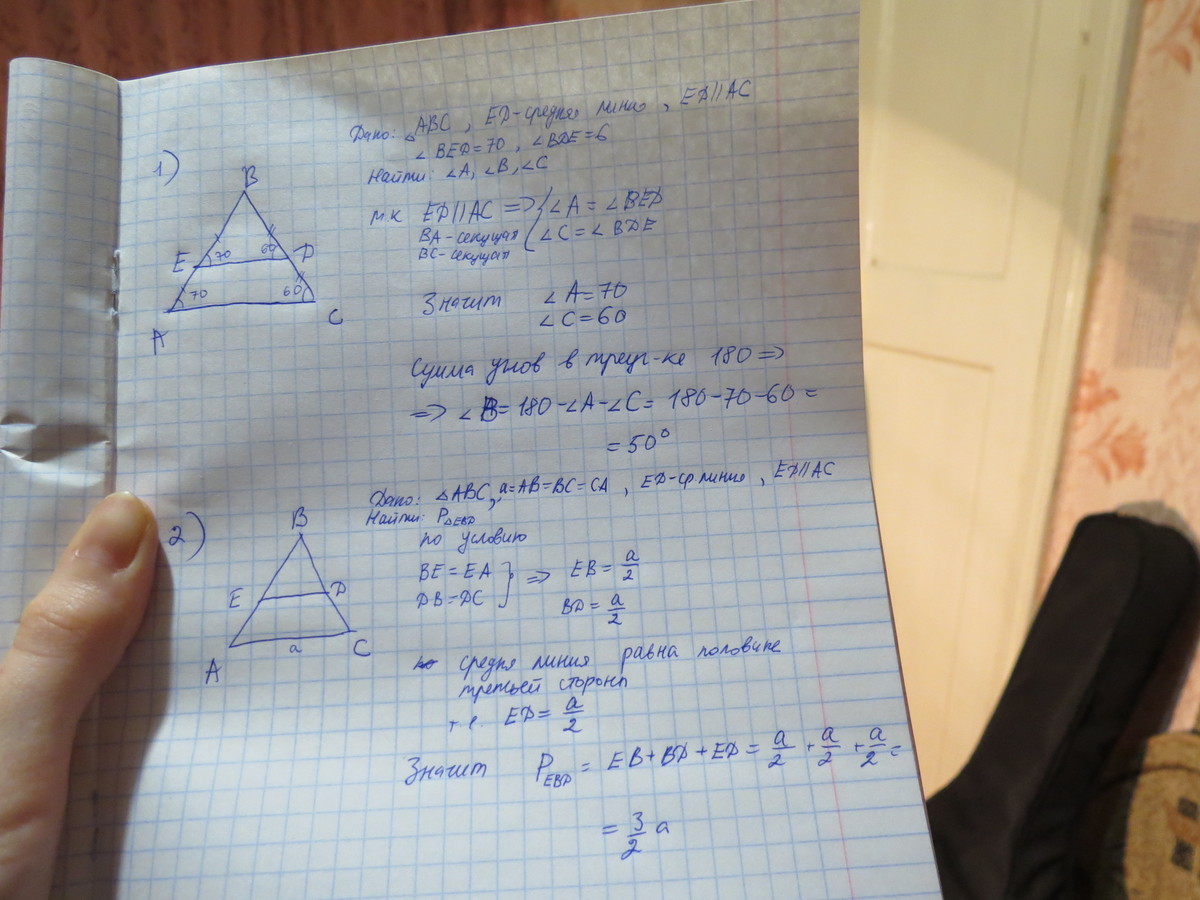 Дано: △ABC, ED-средняя линия, ED||AC
∠BED=70, ∠BDE=6
Найти: ∠A, ∠B, ∠C
1)
B
E 70 60 D
70 60
A C
т.к ED||AC => { ∠A = ∠BED
BA-секущая ∠C = ∠BDE
BC-секущая
Значит ∠A=70
∠C=60
Сумма углов в треуг-ке 180 =>
=> ∠B=180-∠A-∠C= 180-70-60=
=50°
Дано: △ABC, a=AB=BC=CA, ED-ср линия, ED||AC
Найти: P△EBD
2)
B
E D
A a C
по условию
BE=EA } => EB= a/2
DB=DC BD= a/2
средня линия равна половине
третьей стороны
т.е. ED= a/2
Значит P EBD = EB+BD+ED= a/2 + a/2 + a/2 =
= 3/2 a